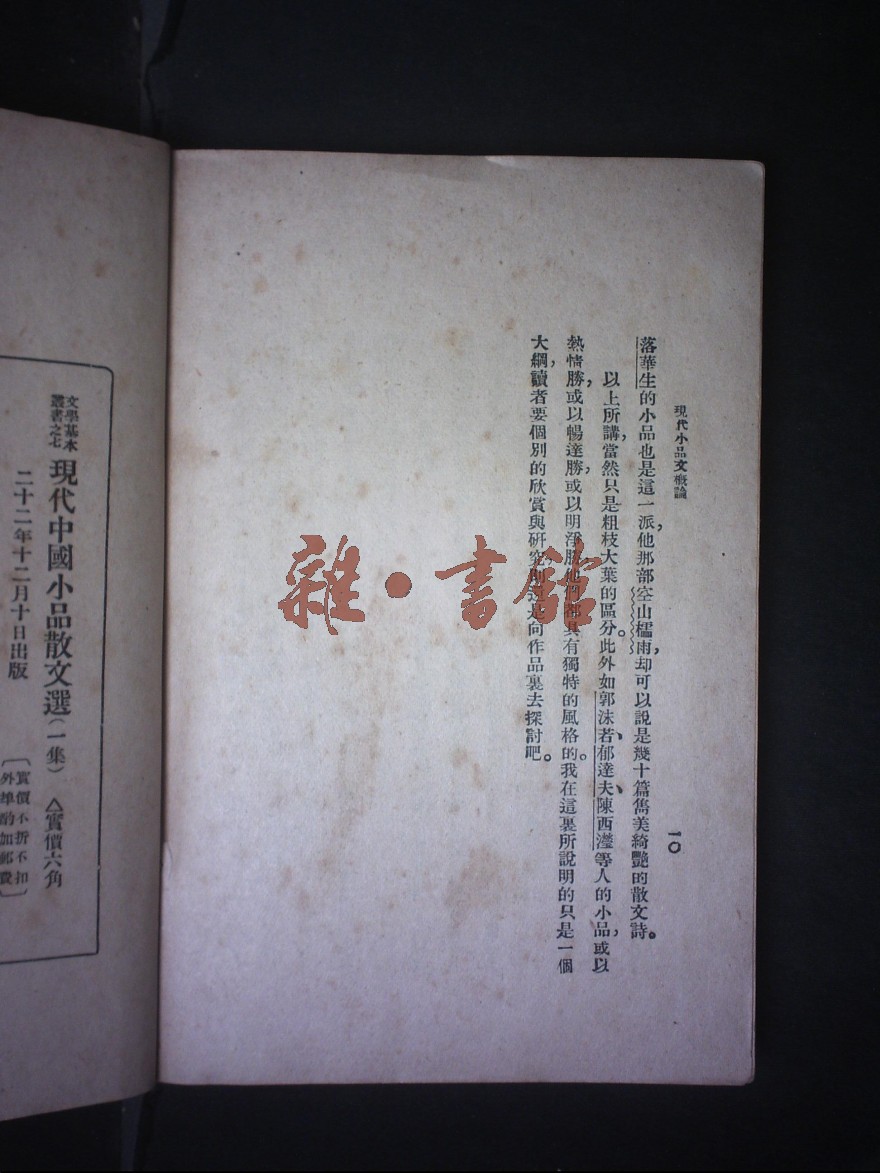 現代小品文概論
一〇
落華生的小品也是這一派，他那部空山檽雨，却可以說是幾十篇雋美綺艷的散文詩。
以上所講，當然只是粗枝大葉的區分。此外如郭沫若、郁達夫、陳西瀅等人的小品，或以
熱情勝，或以暢達勝，或以明淨勝，他們都具有獨特的風格的。我在這裏所說明的只是一個
大綱，讀者要個別的欣賞與研究，則還是向作品裏去探討吧。
雜·書館
文學基本
叢書之七
現代中國小品散文選（一集）
△實價六角
二十二年十二月十日出版
〔實價不折不扣
外埠酌加郵費〕